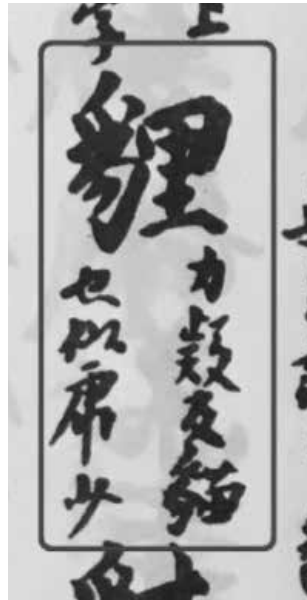 貍
力疑反貓
也似虎少